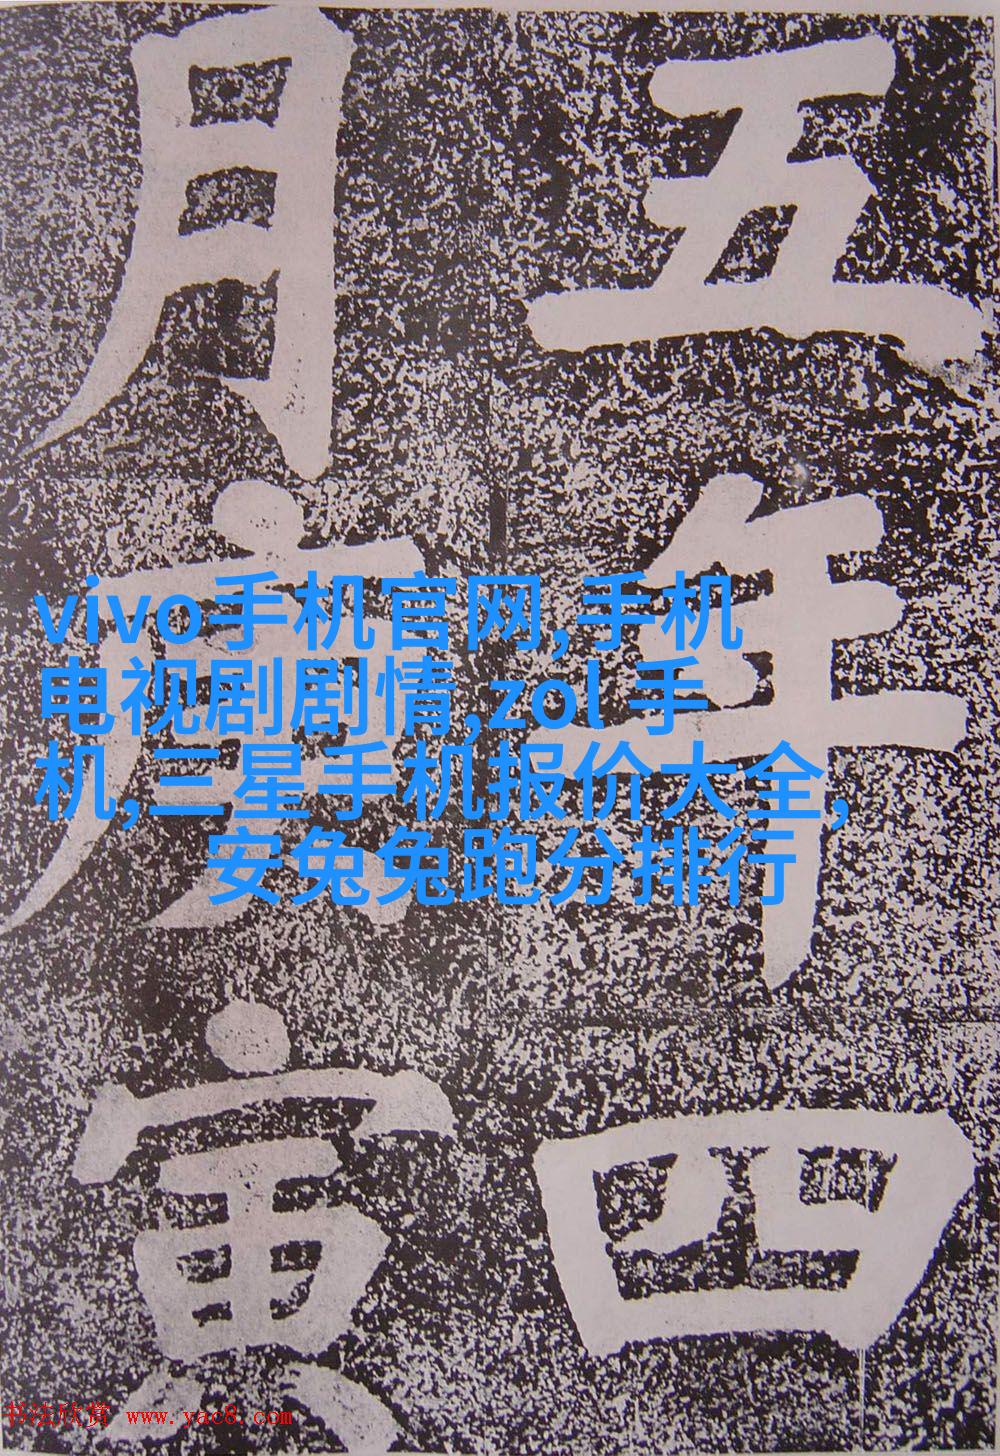 五年四
月庚寅
vivo手机官网,手机
电视剧剧情,zol 手
机,三星手机报价大全,
安兔兔跑分排行
书法欣赏 www.yac8.com